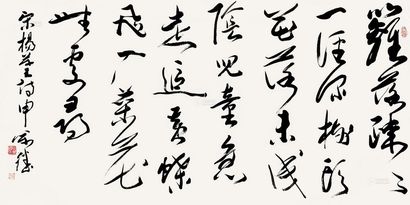 籬落疎々
一徑深樹頭
花落未成
陰兒童急
走追黃蝶
飛入菜花
無處尋
宋楊萬里詩申